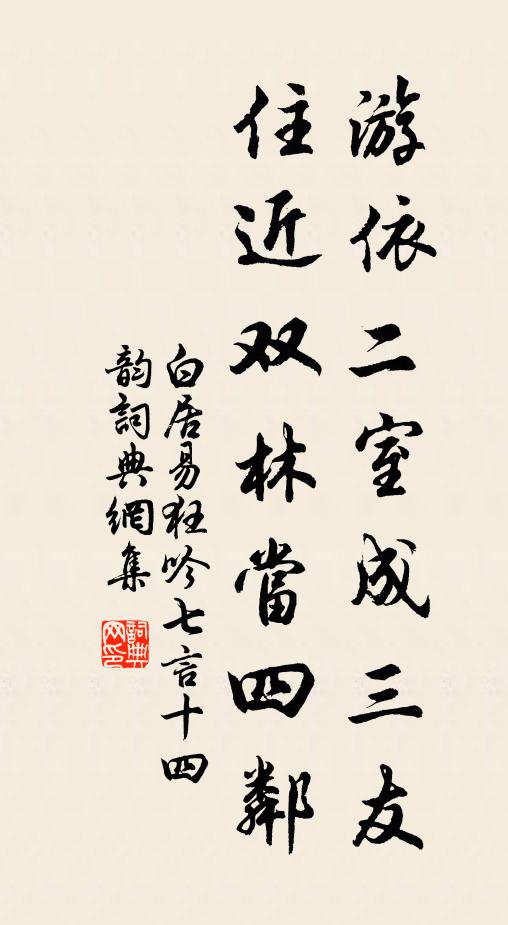 游依二室成三友
住近双林當四鄰
白居易狂吟七言十四
韵詞典網集
詞典网印